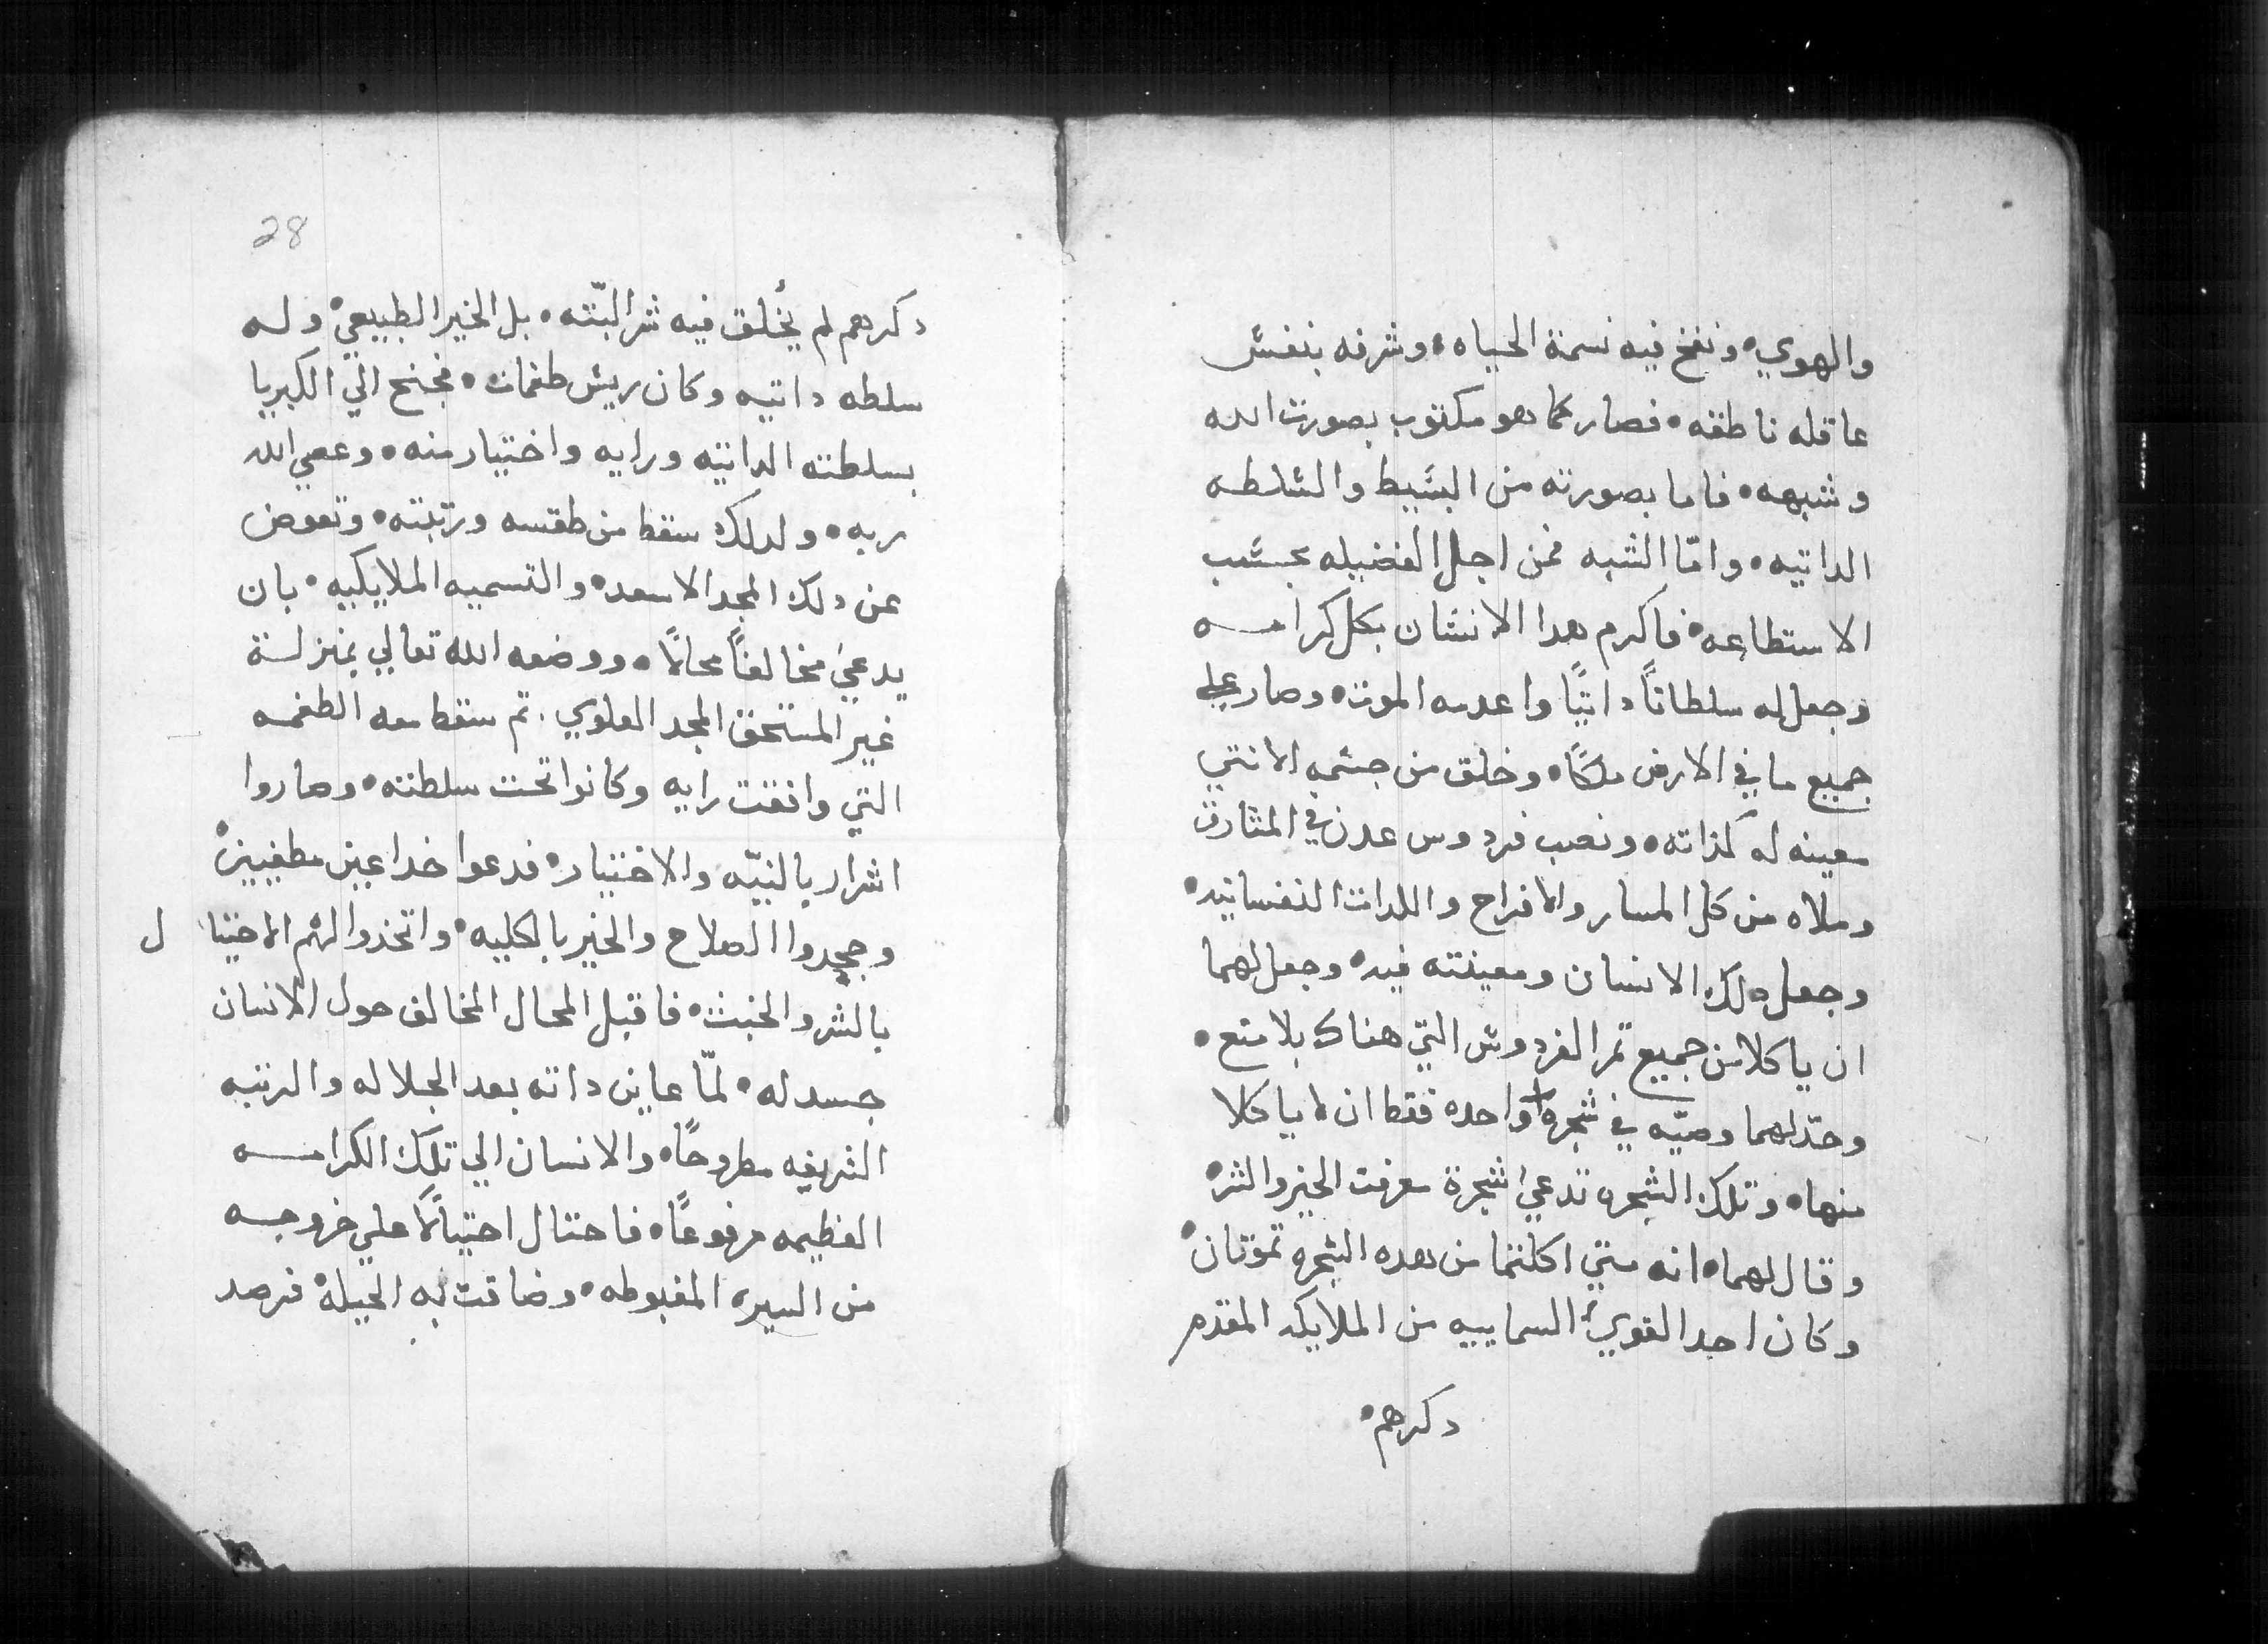 والهوي• ونفخ فيه نسمة الحياه• وشرفه بنفس
عاقله ناطقه• فصار كما هو مكتوب بصورت الله
وشبهه• فاما بصورته من البسيط والسلطه
الداتيه• وامّا الشبه فمن اجل الفضيله بحسب
الاستطاعه• فاكرم هدا الانسان بكل كرامه
وجعل له سلطاناً داتيًا واعدمه الموت• وصار علي
جميع ما في الارض ملكًا• وخلق من جسمه الانتي
معينه له كذاته• ونصب فردوس عدن في المشارق
وملاه من كل المسار والافراح واللدات النفسانيه•
وجعل دلك الانسان ومعينته فيه• وجعل لهما
ان ياكلا من جميع تمر الفردوس التي هناك بلا منع•
وحدّ لهما وصيّه في شجرة واحده فقط ان لا ياكلا
منها• وتلك الشجره تدعي شجرة معرفت الخير والشر•
وقال لهما• انه متي اكلتما من هده الشجره تموتان•
وكان احد القوي السماييه من الملايكه المقدم
دكرهم•
28
دكرهم لم يُخلق فيه شر البّته• بل الخير الطبيعي• وله
سلطه داتيه وكان ريس طغمات• فجنح الي الكبريا
بسلطته الداتيه ورايه واختيار منه• وعصي الله
ربه• ولدلك سقط من طقسه ورتبته• وتعوض
عن دلك المجد الاسعد• والتسميه الملايكيه• بان
يدعي مخالفاً محالاً• ووضعه الله تعالي بمنزلة
غير المستحق المجد العلوي. تم سقط معه الطغمه
التي وافقت رايه وكانوا تحت سلطته• وصاروا
اشرار بالنيّه والاختيار• فدعوا خداعين مطغيين•
وجحدوا الصلاح والخير بالكليه• واتخذوا لهم الاحتيا ل
بالشر والخبث• فاقبل المحال المخالف حول الانسان
حسد له• لمّا عاين داته بعد الجلاله والرتبه
الشريفه مطروحًا• والانسان الي تلك الكرامه
العظيمه مرفوعًا• فاحتال احتيالًا علي خروجه
من السيره المغبوطه• وضاقت به الحيلة• فرصد